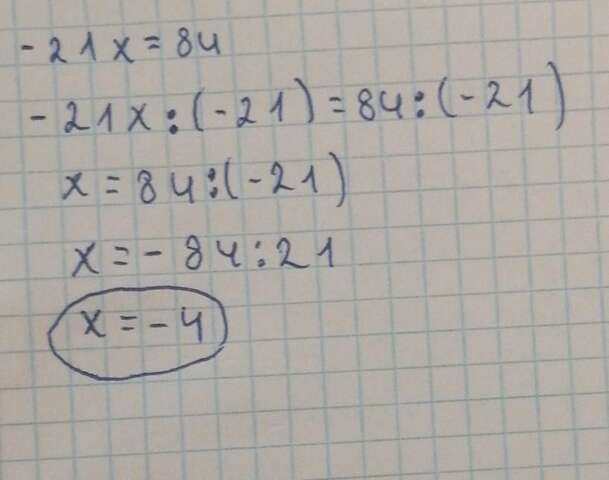 -21x=84
-21x:(-21)=84:(-21)
x=84:(-21)
x=-84:21
x=-4